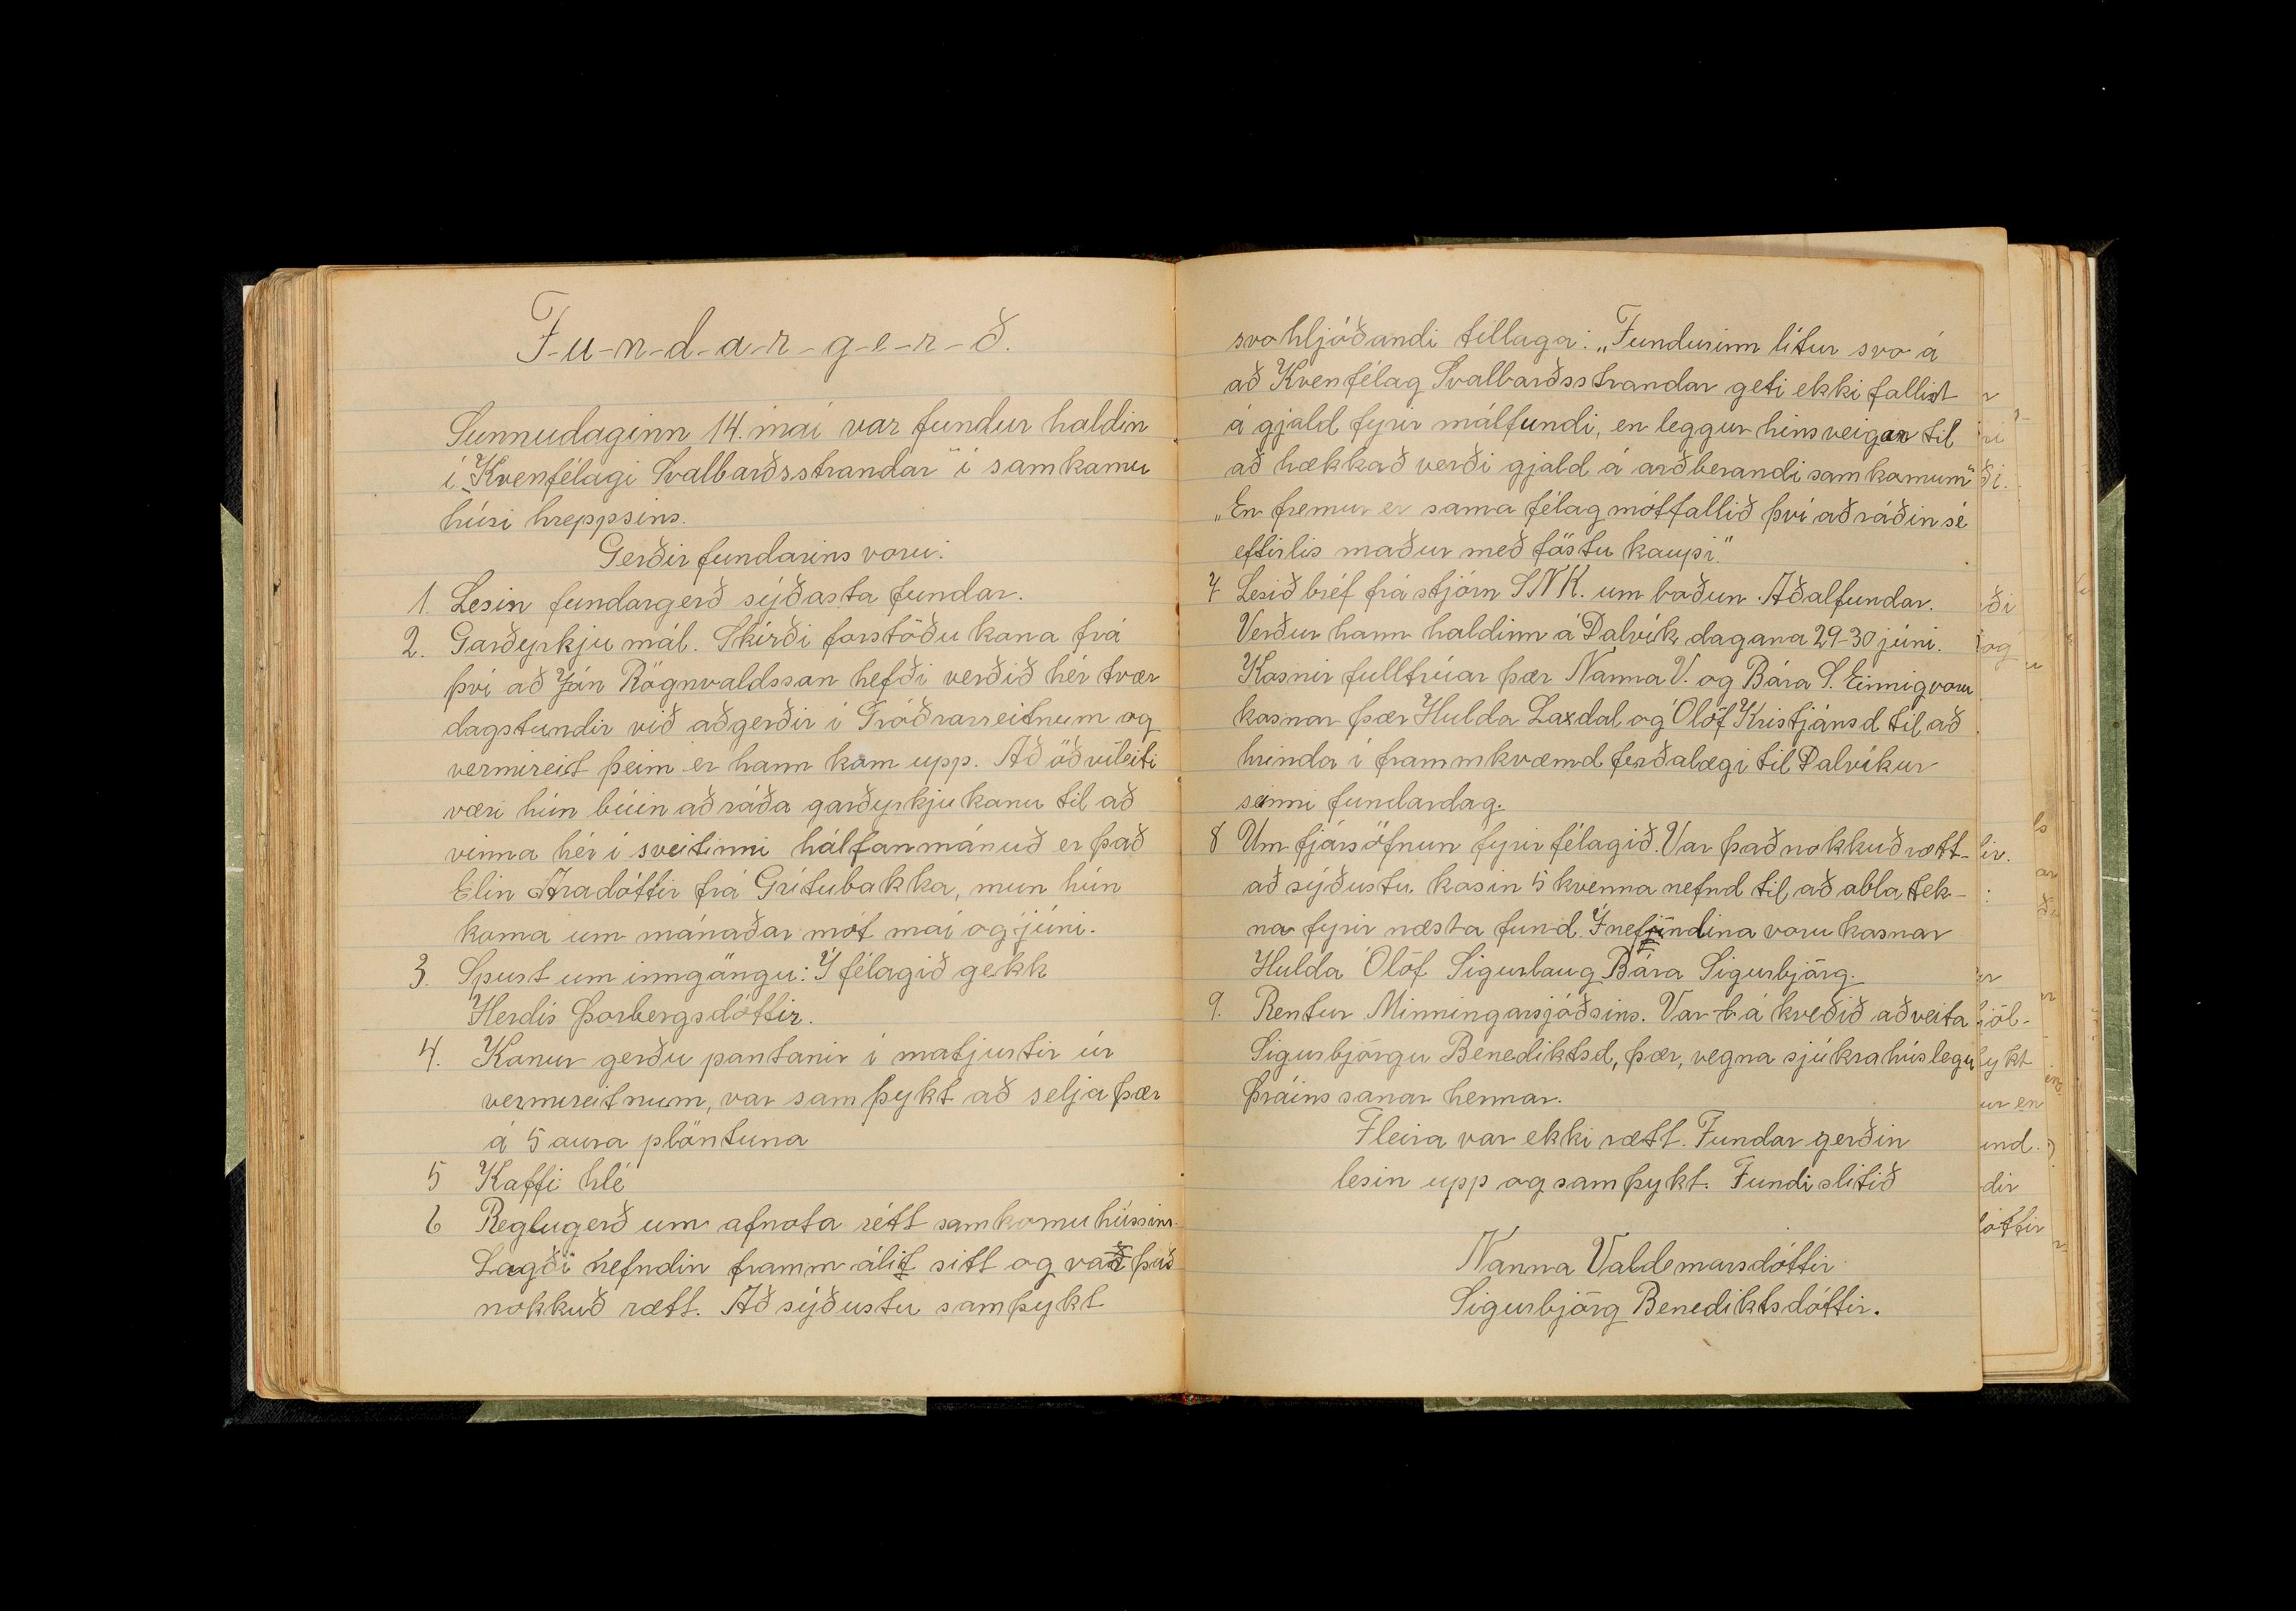 F-u-n-d-a-r-g-e-r-ð.
Sunnudaginn 14. maí var fundur haldin
í „Kvenfélagi Svalbarðsstrandar" í samkomu
húsi hreppsins.
Gerðir fundarins voru:
1. Lesin fundargerð sýðasta fundar.
2. Garðyrkju mál. Skírði forstöðu kona frá
því að Jón Rögnvaldsson hefði verðið hér tvær
dagstundir við aðgerðir í Gróðrarreitnum og
vermireit þeim er hann kom upp. Að öðruleiti
væri hún búin að ráða garðyrkjukonu til að
vinna hér í sveitinni hálfanmánuð er það
Elin Aradóttir frá Grítubakka, mun hún
koma um mánaðar mót maí og júni.
3. Spurt um inngöngu: Í félagið gekk
Herdís Þorbergsdóttir.
4. Konur gerðu pantanir í matjurtir úr
vermireitnum, var samþykt að selja þær
á 5 aura plöntuna
5 Kaffi hlé
6 Reglugerð um afnota rétt samkomuhússins.
Lagði nefndin framm álit sitt og var það
nokkuð rætt. Að sýðustu samþykt
svohljóðandi tillaga: „Fundurinn lítur svo á
að Kvenfélag Svalbarðsstrandar geti ekki fallist
á gjald fyrir málfundi, en leggur hinsveigar til
að hækkað verði gjald á arðberandi samkomum"
„En fremur er sama félag mótfallið því að ráðin sé
eftirlis maður með föstu kaupi."
7 Lesið bréf frá stjórn SNK. um boðun Aðalfundar.
Verður hann haldinn á Dalvík dagana 29-30 júni.
Kosnir fulltrúar þær Nanna V. og Bára S. Einnig voru
kosnar þær Hulda Laxdal og Ólöf Kristjánsd til að
hrinda í frammkvæmd ferðalægi til Dalvíkur
seinni fundardag.
8 Um fjársöfnun fyrir félagið. Var það nokkuð rætt-
að sýðustu kosin 5 kvenna nefnd til að abla tek-
na fyrir næsta fund. Í nefndina voru kosnar
Hulda Ólöf Sigurlaug Bára Sigurbjörg.
9. Rentur Minningarsjóðsins. Var á kveðið að veita
Sigurbjörgu Benediktsd, þær, vegna sjúkrahúslegu
Þráins sonar hennar.
Fleira var ekki rætt. Fundar gerðin
lesin upp og samþykt. Fundi slitið
Nanna Valdemarsdóttir
Sigurbjörg Benediktsdóttir.